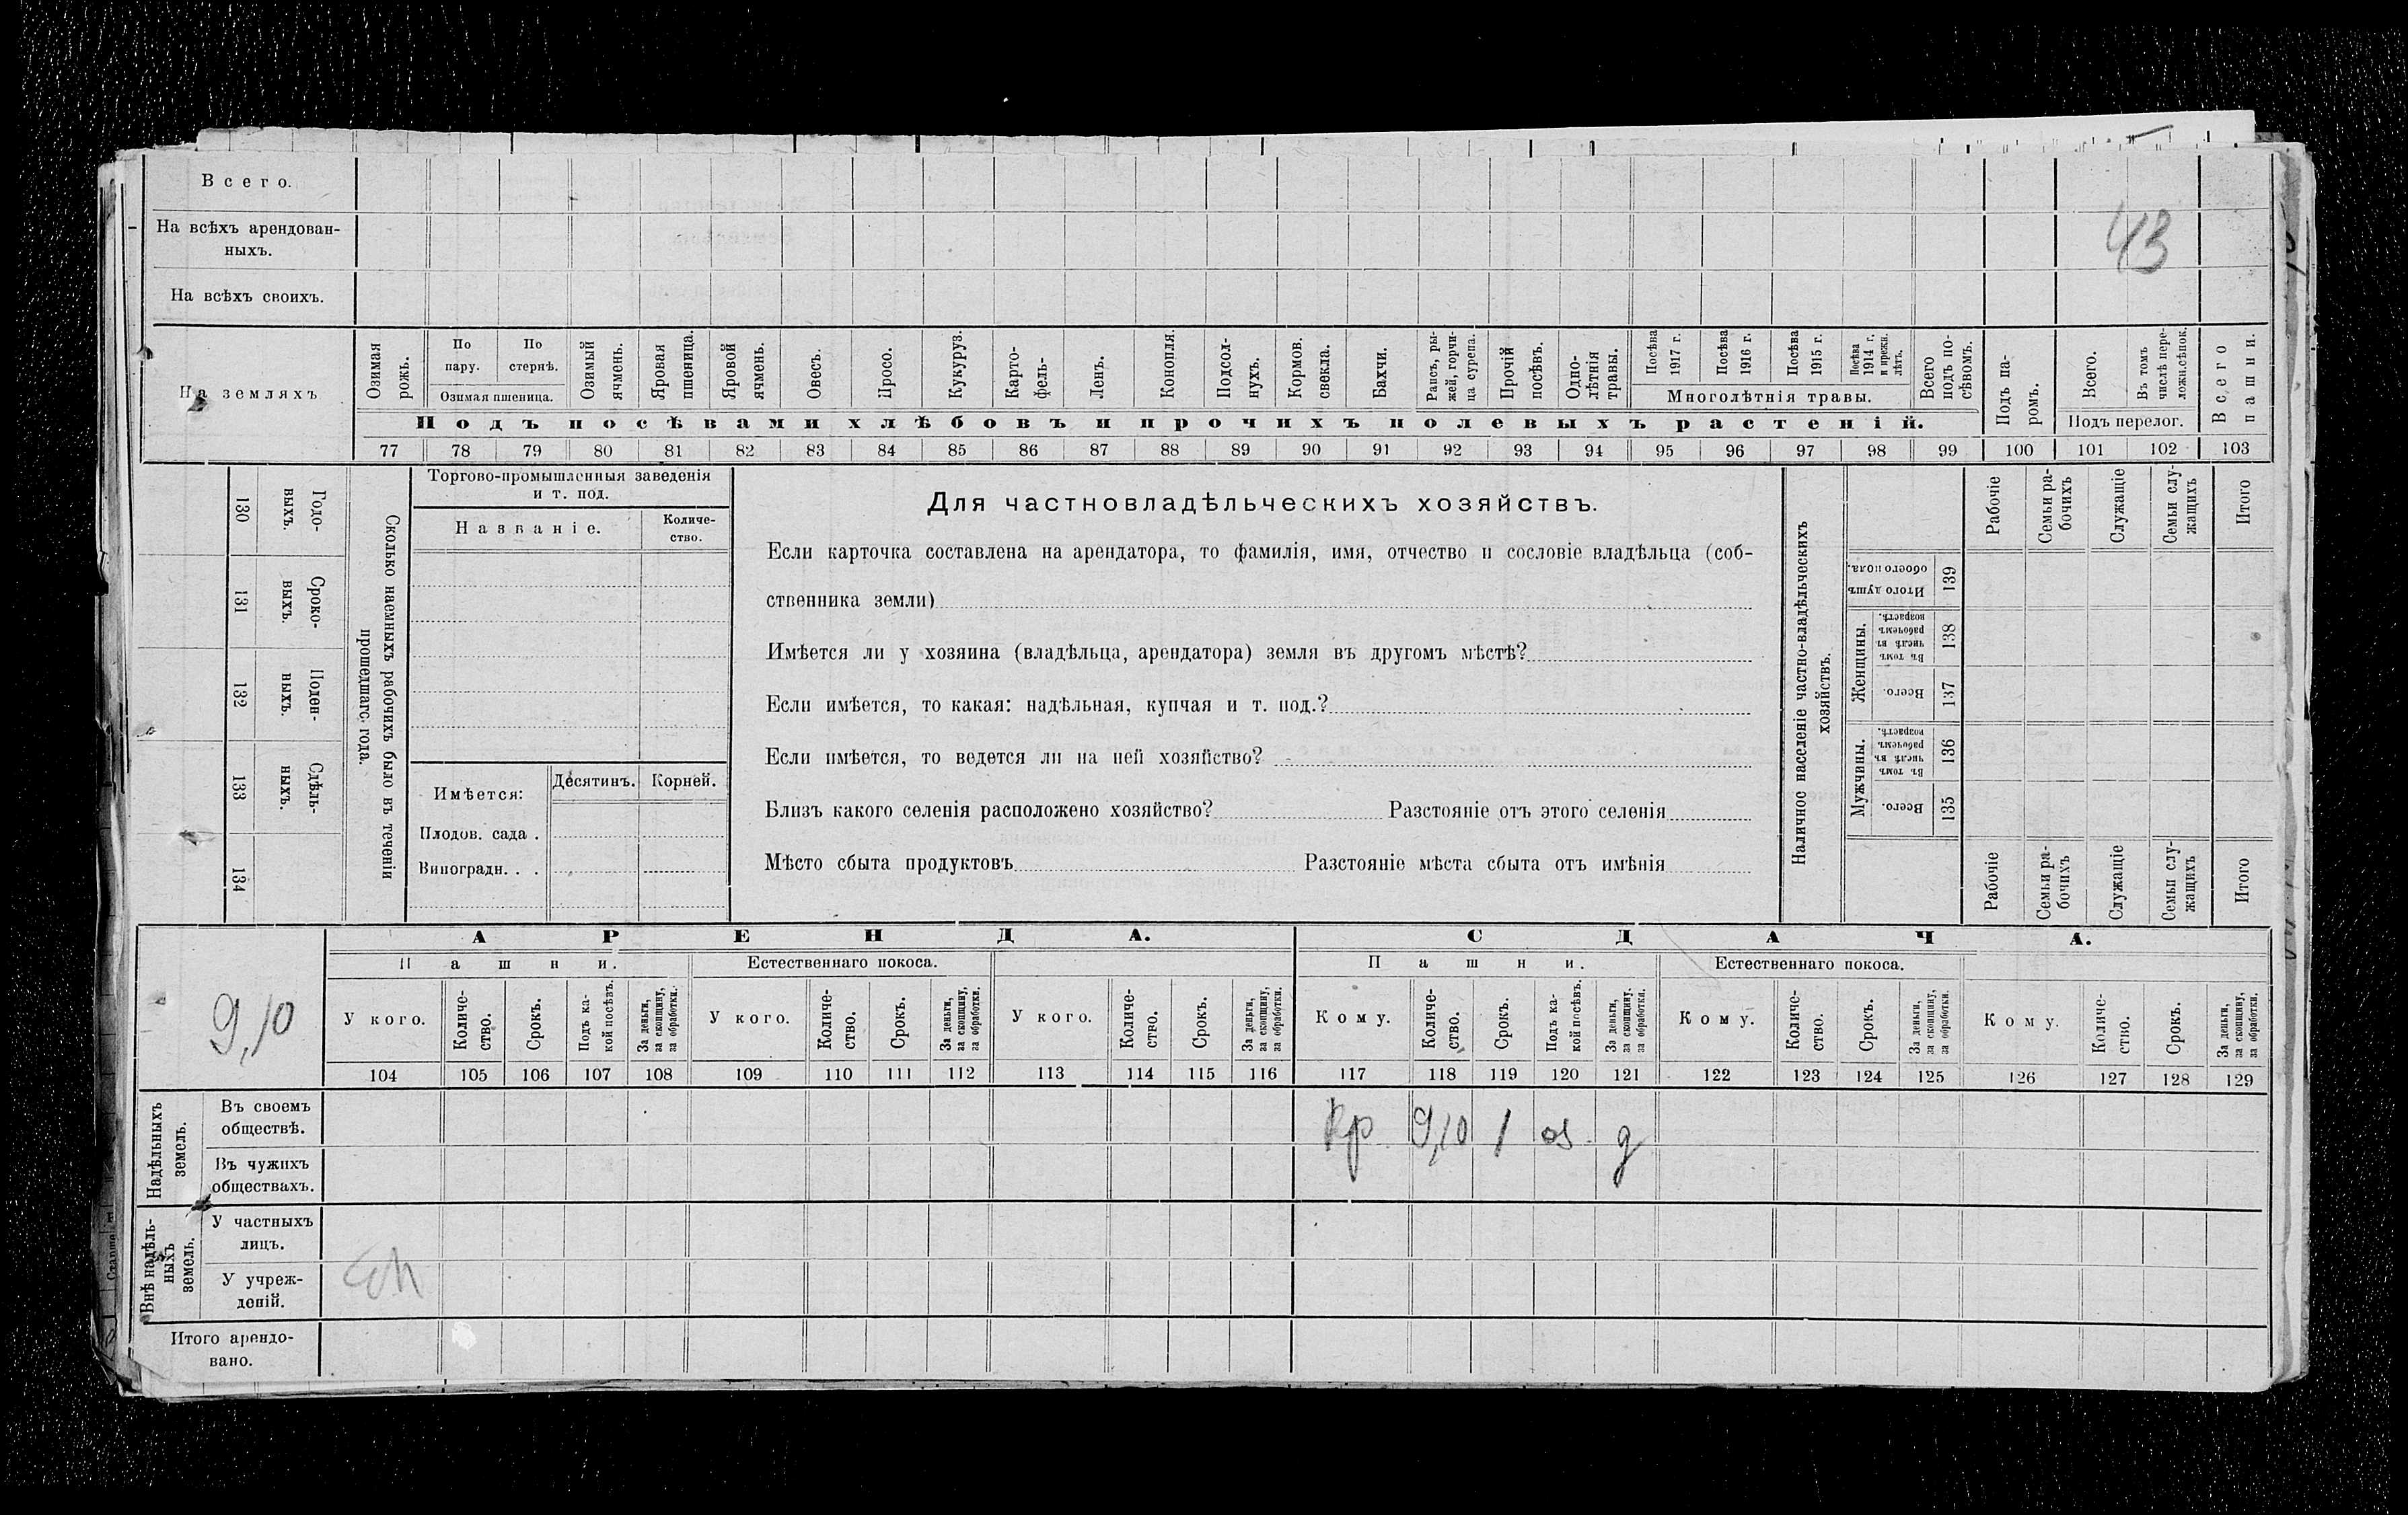 Всего.
На всѣхъ арендован-
ныхъ.
43
На всѣхъ своихъ.
На земляхъ
Озимая рожь.
По пару.
По стернѣ.
Озимая пшеница.
Озимый ячмень.
Яровая пшеница.
Яровой ячмень.
Овесъ.
Просо.
Кукуруз.
Карто-
фель.
Ленъ.
Конопля.
Подсол-
нухъ.
Кормов. свекла.
Бахчи.
Рапсъ, ры-
жей, горчи-
ца сурепа.
Прочій посѣвъ.
Одно-
лѣтнія травы.
Посѣва 1917 г.
Посѣва 1916 г.
Посѣва 1915 г.
Посѣва 1914 г. и прежн. лѣтъ.
Многолѣтнія травы.
Всего подъ по-
сѣвомъ.
Подъ па-
ромъ.
Всего.
Въ томъ числѣ пере-
ложн.сѣнок.
Подъ перелог.
Всего пашни.
Подъ посѣвами хлѣбовъ и прочихъ полевыхъ растеній.
77 78 79 80 81 82 83 84 85 86 87 88 89 90 91 92 93 94 95 96 97 98 99 100 101 102 103
130 Годо-
выхъ.
131 Сроко-
выхъ.
132 Поден-
ныхъ.
133 Сдѣль-
ныхъ.
134
Сколько наемныхъ рабочихъ было въ теченіи
прошедшаго года.
Торгово-промышленныя заведенія
и т. под.
Названіе.
Количе-
ство.
Имѣется:
Десятинъ.
Корней.
Плодов. сада .
Виноградн. . .
Для частновладѣльческихъ хозяйствъ.
Если карточка составлена на арендатора, то фамилія, имя, отчество и сословіе владѣльца (соб-
ственника земли)
Имѣется ли у хозяина (владѣльца, арендатора) земля въ другомъ мѣстѣ?
Если имѣется, то какая: надѣльная, купчая и т. под.?
Если имѣется, то ведется ли на ней хозяйство?
Близъ какого селенія расположено хозяйство? Разстояніе отъ этого селенія
Мѣсто сбыта продуктовъ Разстояніе мѣста сбыта отъ имѣнія
Наличное населеніе частно-владѣльческихъ
хозяйствъ.
Рабочіе
Семьи ра-
бочихъ
Служащіе
Семьи слу-
жащихъ
Итого
Итого душъ обоего пола. 139
Женщины.
Въ томъ числѣ въ рабочемъ возрастѣ. 138
Всего. 137
Мужчины.
Въ томъ числѣ въ рабочемъ возрастѣ. 136
Всего. 135
Рабочіе
Семьи ра-
бочихъ
Служащіе
Семьи слу-
жащихъ
Итого
АРЕНДА.
СДАЧА.
Пашни.
Естественнаго покоса.
Пашни.
Естественнаго покоса.
9,10
У кого.
Количе-
ство.
Срокъ.
Подъ ка-
кой посѣвъ.
За деньги,
за скопщину,
за обработки.
У кого.
Количе-
ство.
Срокъ.
За деньги,
за скопщину,
за обработки.
У кого.
Количе-
ство.
Срокъ.
За деньги,
за скопщину,
за обработки.
Кому.
Количе-
ство.
Срокъ.
Подъ ка-
кой посѣвъ.
За деньги,
за скопщину.
за обработки.
Кому.
Количе-
ство.
Срокъ.
За деньги,
за скопщину,
за обработки.
Кому.
Количе-
ство.
Срокъ.
За деньги,
за скопщину,
за обработки.
104 105 106 107 108 109 110 111 112 113 114 115 116 117 118 119 120 121 122 123 124 125 126 127 128 129
Надѣльныхъ
земель.
Въ своемъ
обществѣ.
Кр 9,10 1 оз д
Въ чужихъ
обществахъ.
Внѣ надѣль-
ныхъ
земель.
У частныхъ
лицъ.
У учреж-
деній.
Итого арендо-
вано.